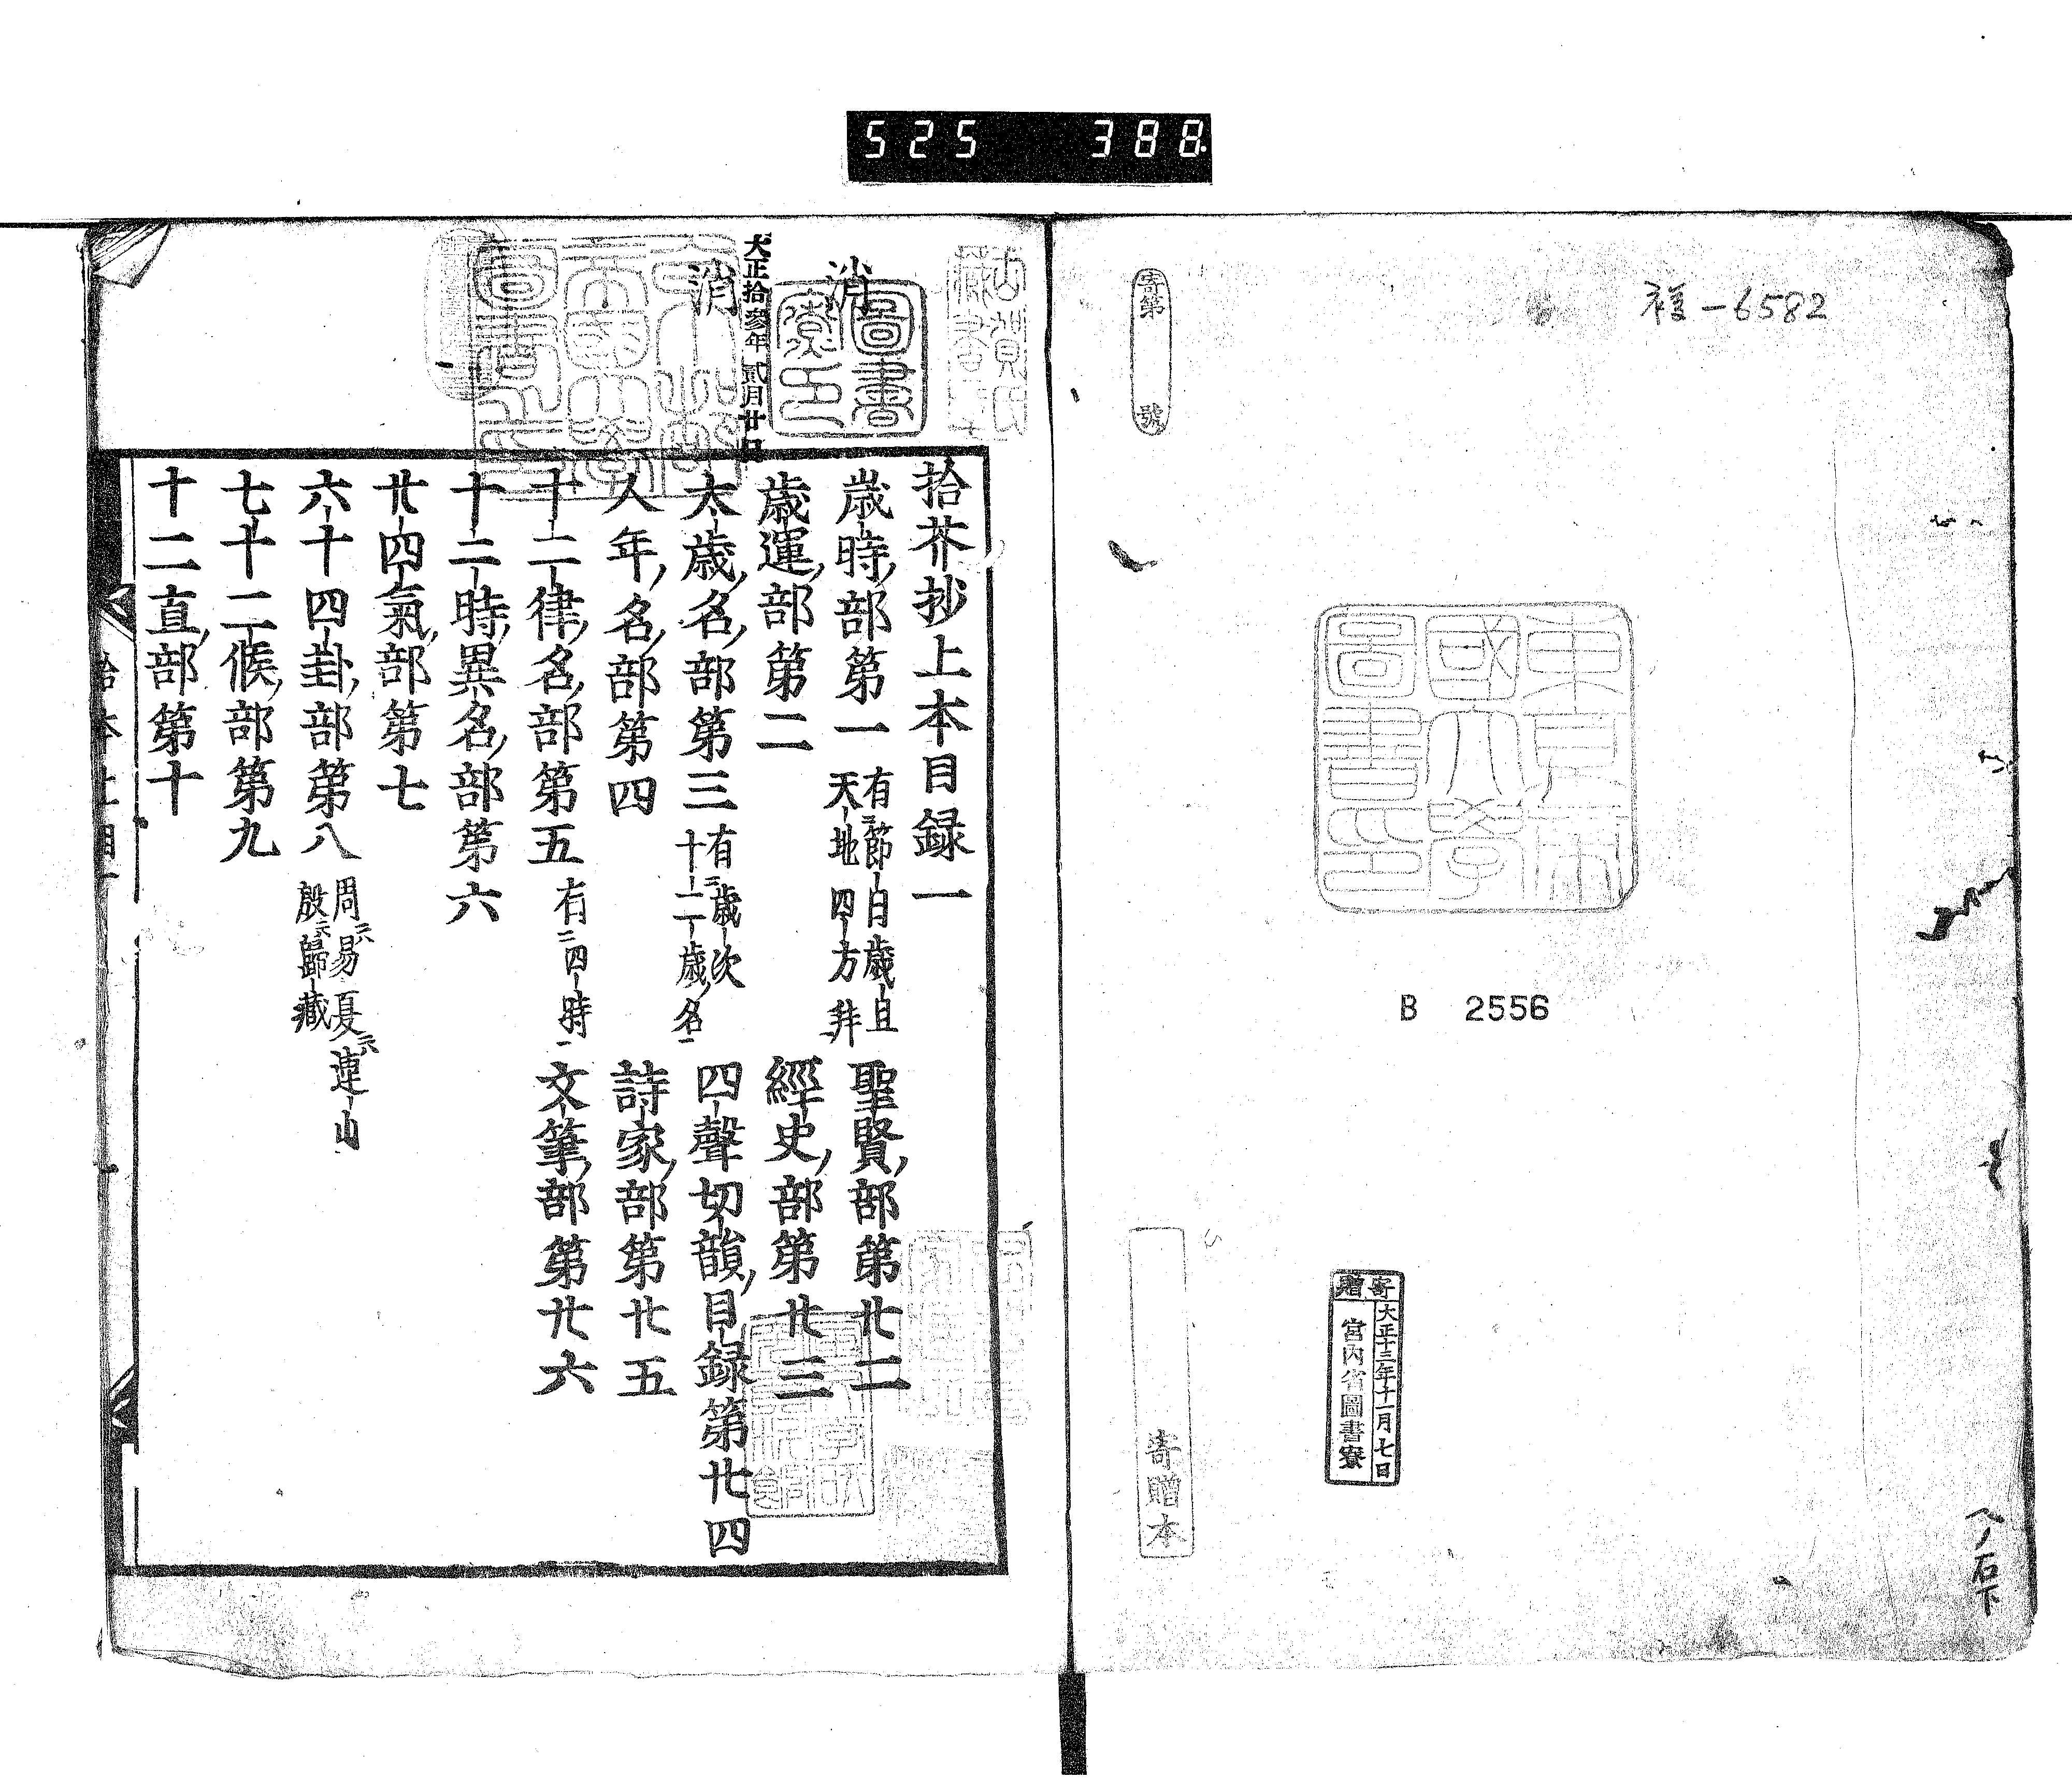 525 388
複-6582
寄第 號
東京帝
國大學
圖書印
B 2556
寄贈
大正十三年十一月七日
宮內省圖書寮
寄贈本
古賀氏
藏書
圖書
寮印
消
消
大正拾參年貳月廿日
帝國大學
圖書印
拾芥抄上本目録一
歳時部第一 有節日歳旦
天地四方幷
歳運部第二
太歳名部第三 有歳次
十二歳名
人年名部第四
十二律名部第五 有四時
十二時異名部第六
廿四氣部第七
六十四卦部第八 周易夏連山
殷歸藏
七十二候部第九
十二直部第十
聖賢部第廿二
經史部第廿三
四聲切韻目録第廿四
詩家部第廿五
文筆部第廿六